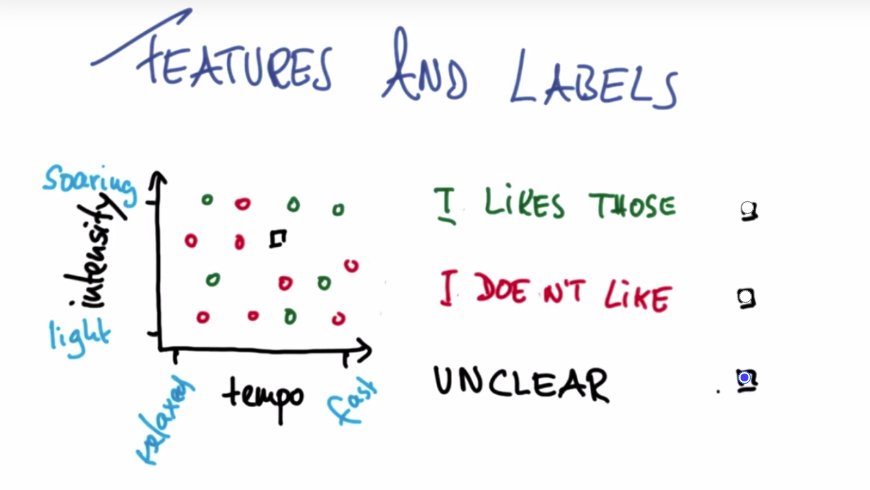 FEATURES AND LABELS
soaring
intensity
light
relaxed
tempo
fast
I LIKES THOSE
I DOEN'T LIKE
UNCLEAR